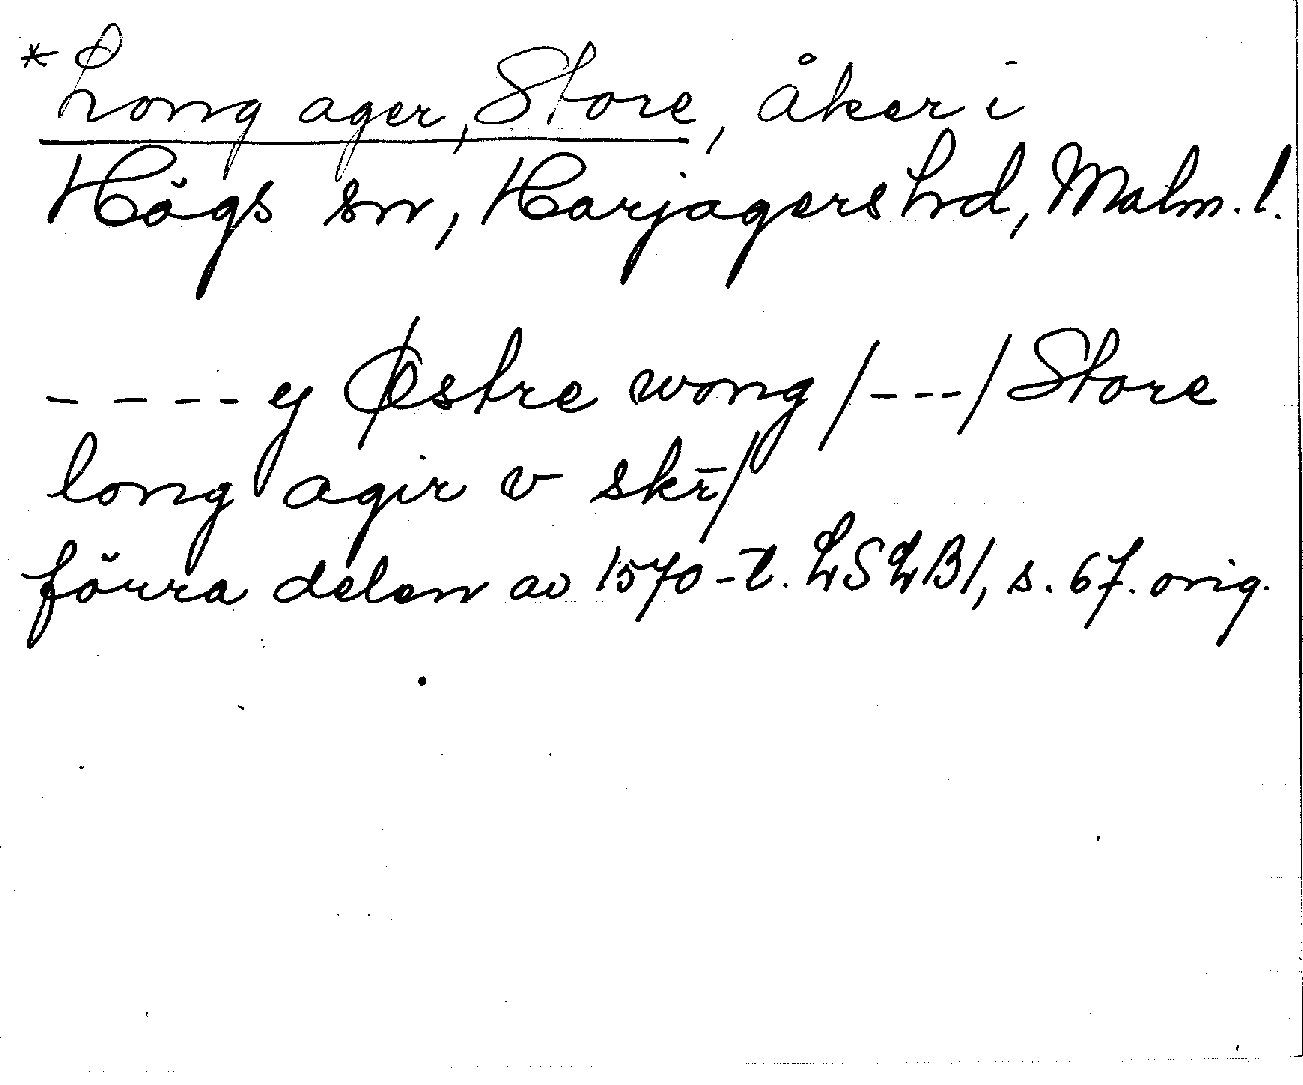 *Long ager, Store, åker i
Högs sn, Harjagers hd, Malm. l.
---- ej Østre wong /---/ Store
long agir v skr̄/
förra delen av 1570-t. LSLB1, s. 67. orig.